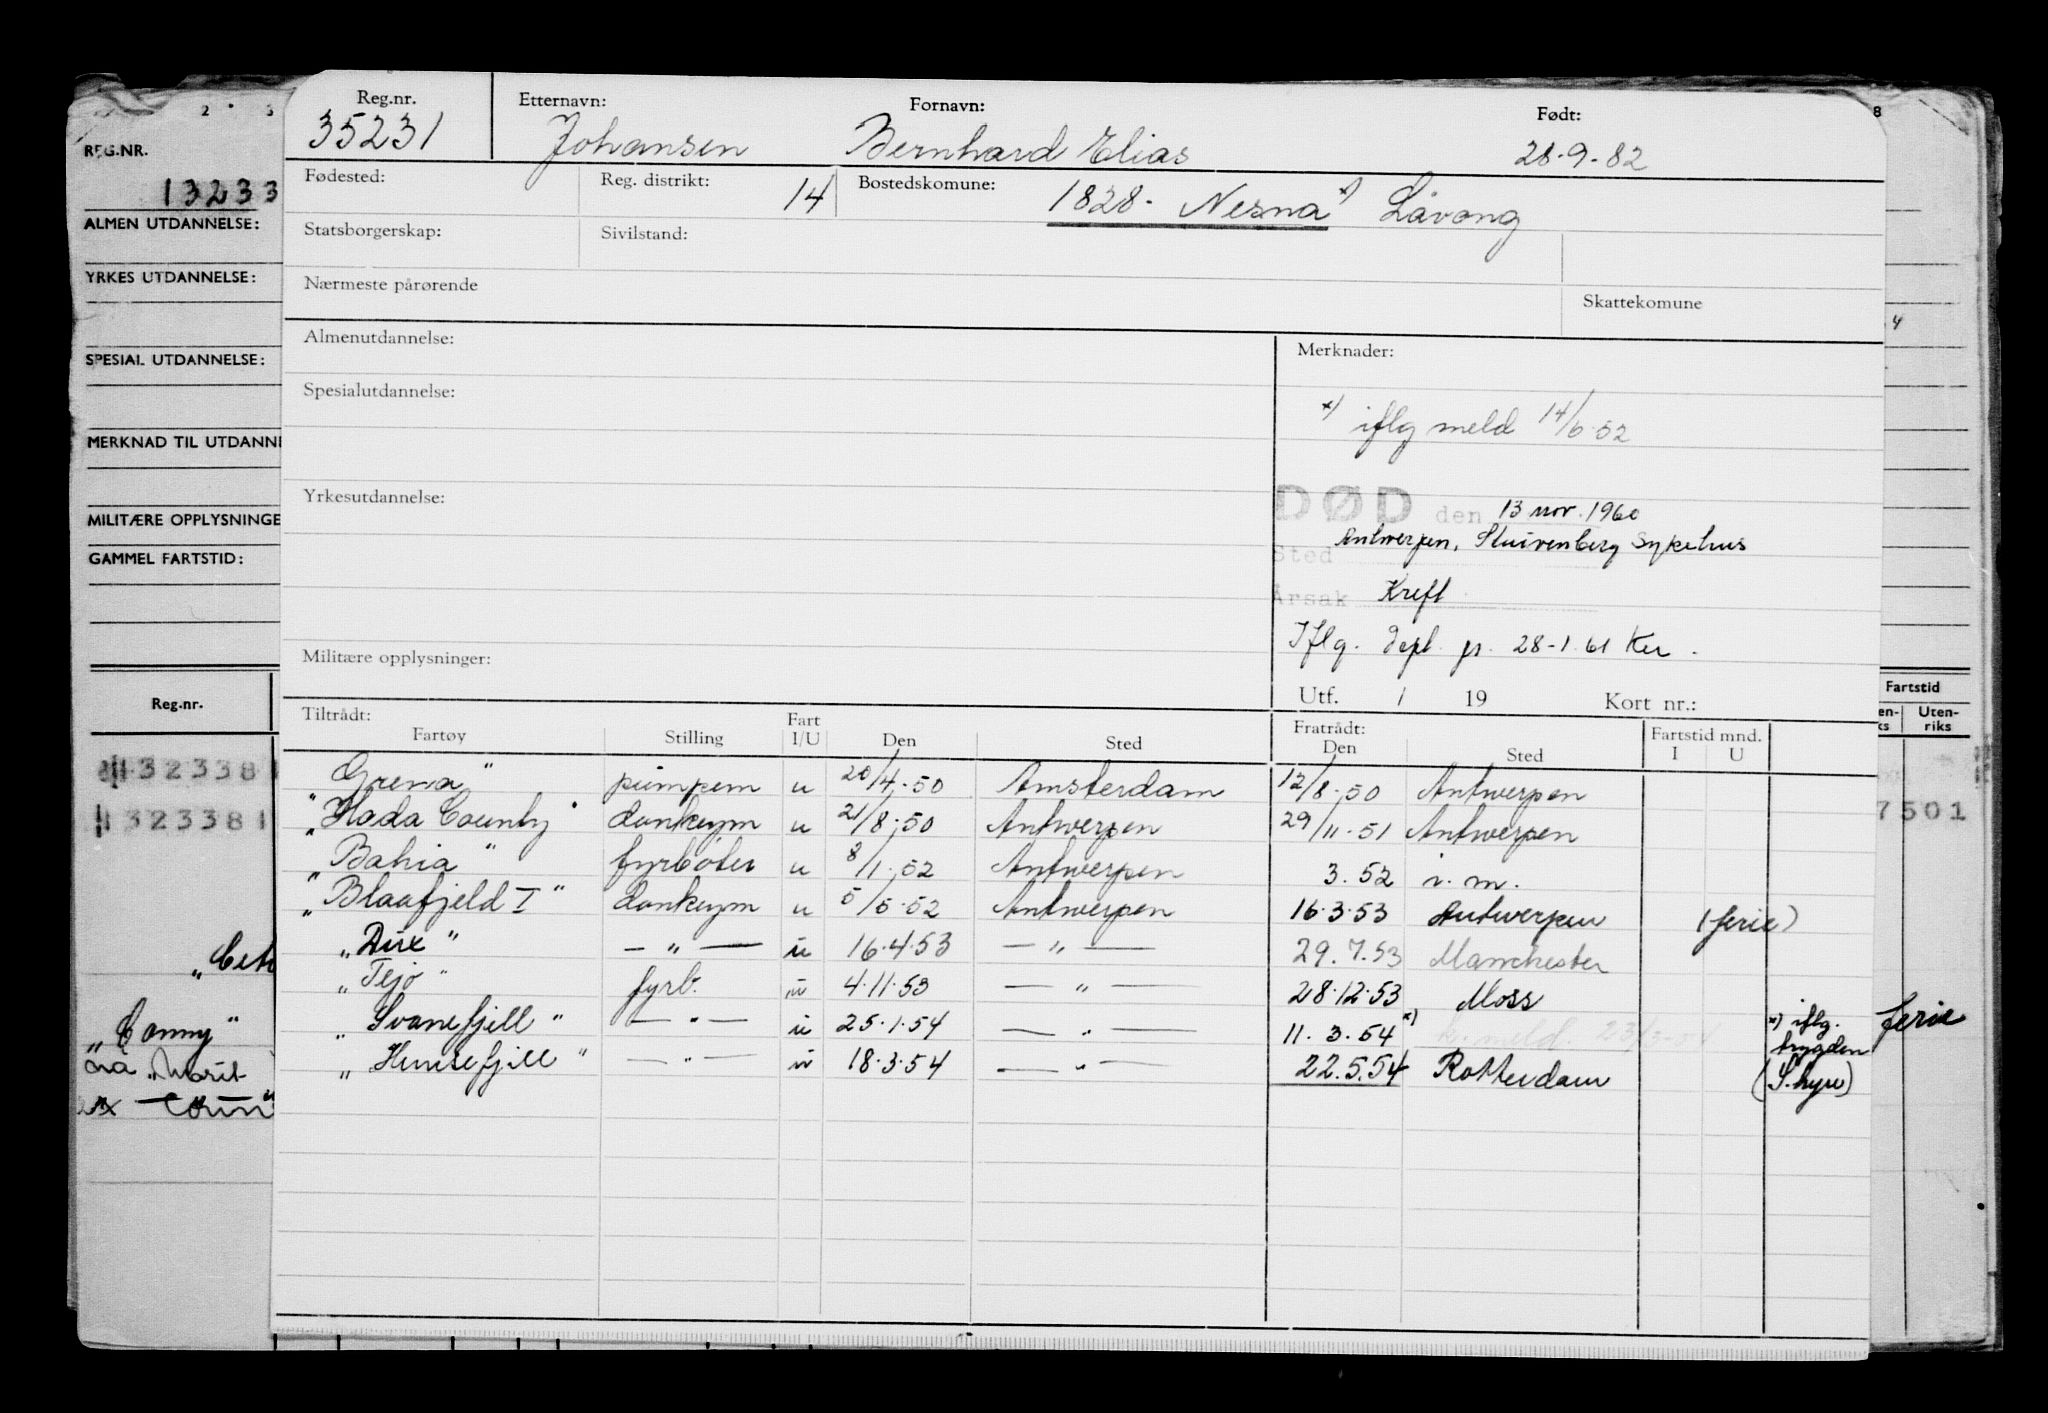 Reg.nr. Etternavn: Fornavn: Født:
35231 Johansen Bernhard Elias 28.9.82
Fødested: Reg. distrikt: 14 Bostedskomune: 1828. Nesna x) Låvong
Statsborgerskap: Sivilstand:
Nærmeste pårørende Skattekomune
Almenutdannelse: Merknader:
Spesialutdannelse:
x) iflg meld 14/6.52
Yrkesutdannelse:
DØD den 13 nov. 1960
Sted Antwerpen, Stuivenberg Sykehus
Årsak Kreft
Iflg. Dept. gr. 28-1.61 Ker.
Militære opplysninger:
Utf. / 19 Kort nr.:
Tiltrådt: Fratrådt:
Fartøy Stilling Fart I/U Den Sted Den Sted Fartstid mnd. I U
"Grena" pumpem u 20/4.50 Amsterdam 12/8.50 Antwerpen
"Hada County" donkeym u 21/8.50 Antwerpen 29/11.51 Antwerpen
"Bahia" fyrbøter u 8/1.52 Antwerpen 3.52 i.m.
"Blaafjeld I" donkeym u 5/5.52 Antwerpen 16.3.53 Antwerpen (ferie)
"Dux" — " — u 16.4.53 — " — 29.7.53 Manchester
"Tejo" fyrb. u 4.11.53 — " — 28.12.53 Moss
"Svanefjell" — " — u 25.1.54 — " — 11.3.54 x) k. meld. 23/3-54 x) iflg. trygden
"Hunsefjell" — " — u 18.3.54 — " — 22.5.54 Rotterdam (S.hyre)
2 3
REG.NR.
13233
ALMEN UTDANNELSE:
YRKES UTDANNELSE:
SPESIAL UTDANNELSE:
MERKNAD TIL UTDANNE
MILITÆRE OPPLYSNINGE
GAMMEL FARTSTID:
Reg.nr.
1323381
1323381
"Conny"
"Marit
8
4
Fartstid
en- Uten-
ks riks
7501
ferie